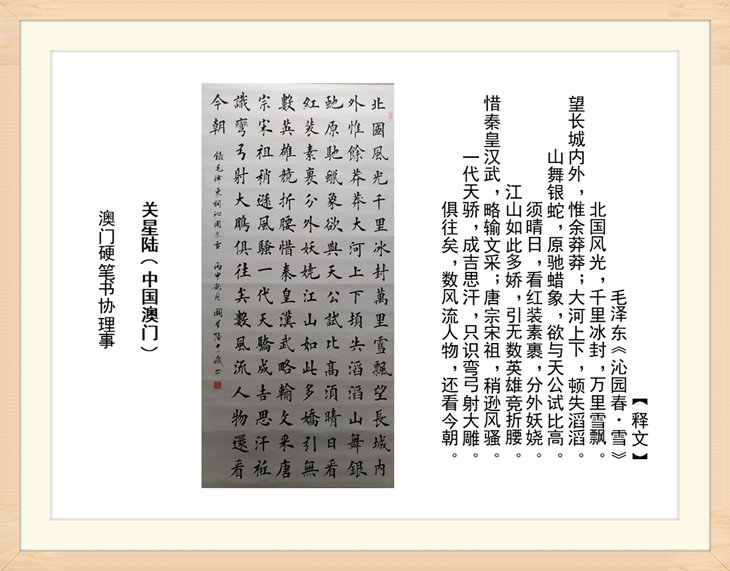 【释文】
毛泽东《沁园春·雪》
北国风光，千里冰封，万里雪飘。
望长城内外，惟余莽莽；大河上下，顿失滔滔。
山舞银蛇，原驰蜡象，欲与天公试比高。
须晴日，看红装素裹，分外妖娆。
江山如此多娇，引无数英雄竞折腰。
惜秦皇汉武，略输文采；唐宗宋祖，稍逊风骚。
一代天骄，成吉思汗，只识弯弓射大雕。
俱往矣，数风流人物，还看今朝。
北國風光千里冰封萬里雪飄望長城内
外惟餘莽莽大河上下頓失滔滔山舞銀
虵原馳蠟象欲與天公試比高須晴日看
紅裝素裹分外妖嬈江山如此多嬌引無
數英雄競折腰惜秦皇漢武略輸文采唐
宗宋祖稍遜風騷一代天驕成吉思汗祗
識彎弓射大鵰俱往矣數風流人物還看
今朝
錄毛澤東詞沁園春雪 丙申 月 關星陸十一歲書
关星陆（中国澳门）
澳门硬笔书协理事